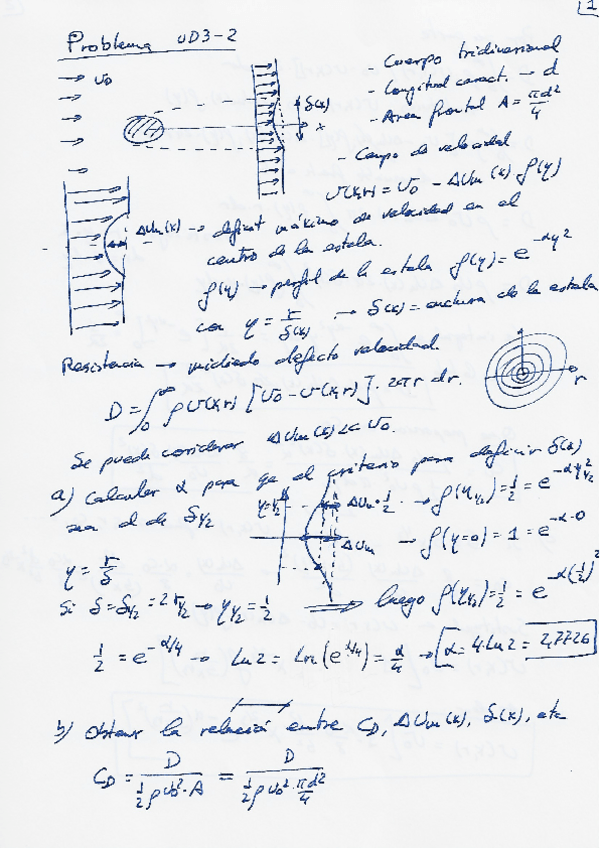 1
Problema UD3-2
U0
δ(x)
x
- Cuerpo tridimensional
- Longitud caract. → d
- Area frontal A = πd²/4
- Campo de velocidad
U(x,r) = U0 - ΔUm(x) f(η)
ΔUm(x) → deficit máximo de velocidad en el
centro de la estela.
f(η) → perfil de la estela f(η) = e^(-αη²)
con η = r/δ(x) → δ(x) = anchura de la estela
Resistencia → midiendo defecto velocidad.
r
D = ∫₀^∞ ρ U(x,r) [U0 - U(x,r)] · 2πr dr.
Se puede considerar ΔUm(x) << U0.
a) Calcular α para que el criterio para definir δ(x)
sea el de δ1/2
η=η1/2
ΔUm·1/2 → f(η1/2) = 1/2 = e^(-αη1/2²)
ΔUm → f(η=0) = 1 = e^(-α·0)
η = r/δ
Si δ = δ1/2 = 2r1/2 → η1/2 = 1/2 ⇒ luego f(η1/2) = 1/2 = e^(-α(1/2)²)
1/2 = e^(-α/4) → Ln 2 = Ln(e^(α/4)) = α/4 → α = 4·Ln 2 = 2,7726
b) Obtener la relación entre CD, ΔUm(x), δ(x), etc
CD = D / (1/2 ρ U0² · A) = D / (1/2 ρ U0² · πd²/4)